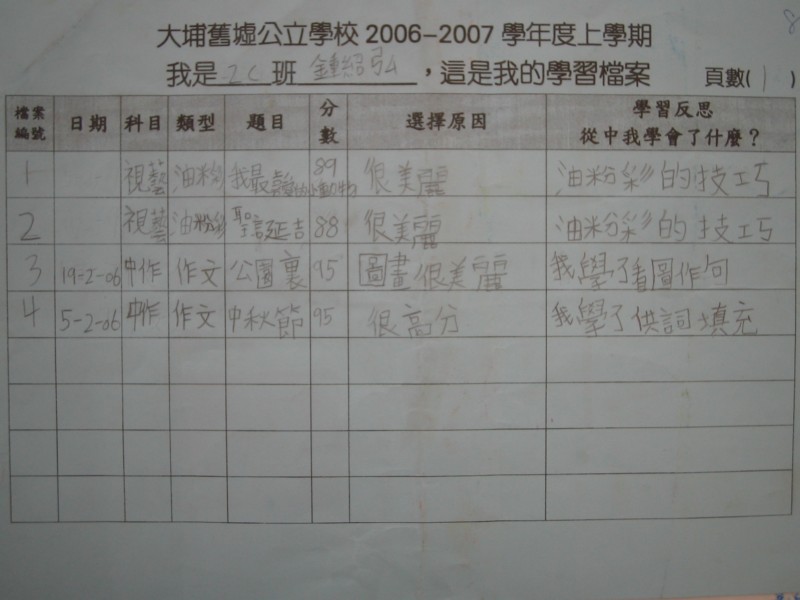 大埔舊墟公立學校 2006-2007 學年度上學期
我是 2C 班 鍾紹弘 ，這是我的學習檔案 頁數( 1 )
檔案編號 日期 科目 類型 題目 分數 選擇原因 學習反思 從中我學會了什麼？
1 視藝 油粉彩 我最 89 很美麗 油粉彩的技巧
2 視藝 油粉彩 聖誕延吉 88 很美麗 油粉彩的技巧
3 19-2-06 中作 作文 公園裏 95 圖畫很美麗 我學了看圖作句
4 5-2-06 中作 作文 中秋節 95 很高分 我學了供詞填充